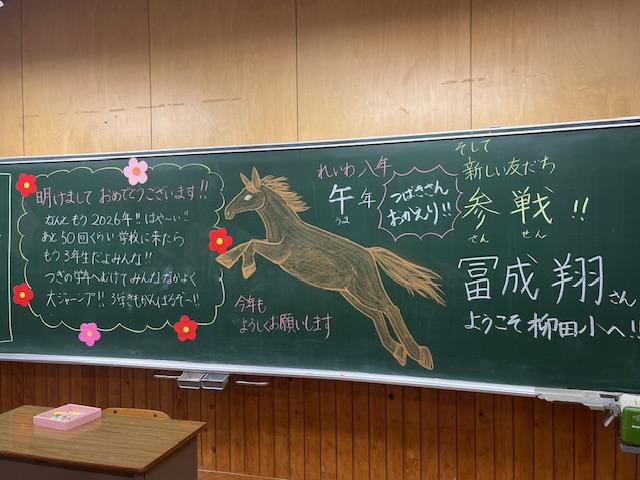 明けまして おめでとうございます!!
なんと もう 2026年!! はや〜い!!
あと50回くらい 学校に来たら
もう3年生だよみんな!!
つぎの学年へむけて みんな なかよく
大ジャーンプ!! 3学きもがんばるぞ〜!!
今年も
よろしくお願いします
れいわ 八年
午年
うま
つばきさん
おかえり!!
そして
新しい友だち
参戦!!
さん せん
冨成 翔さん
ようこそ 柳田小へ!!